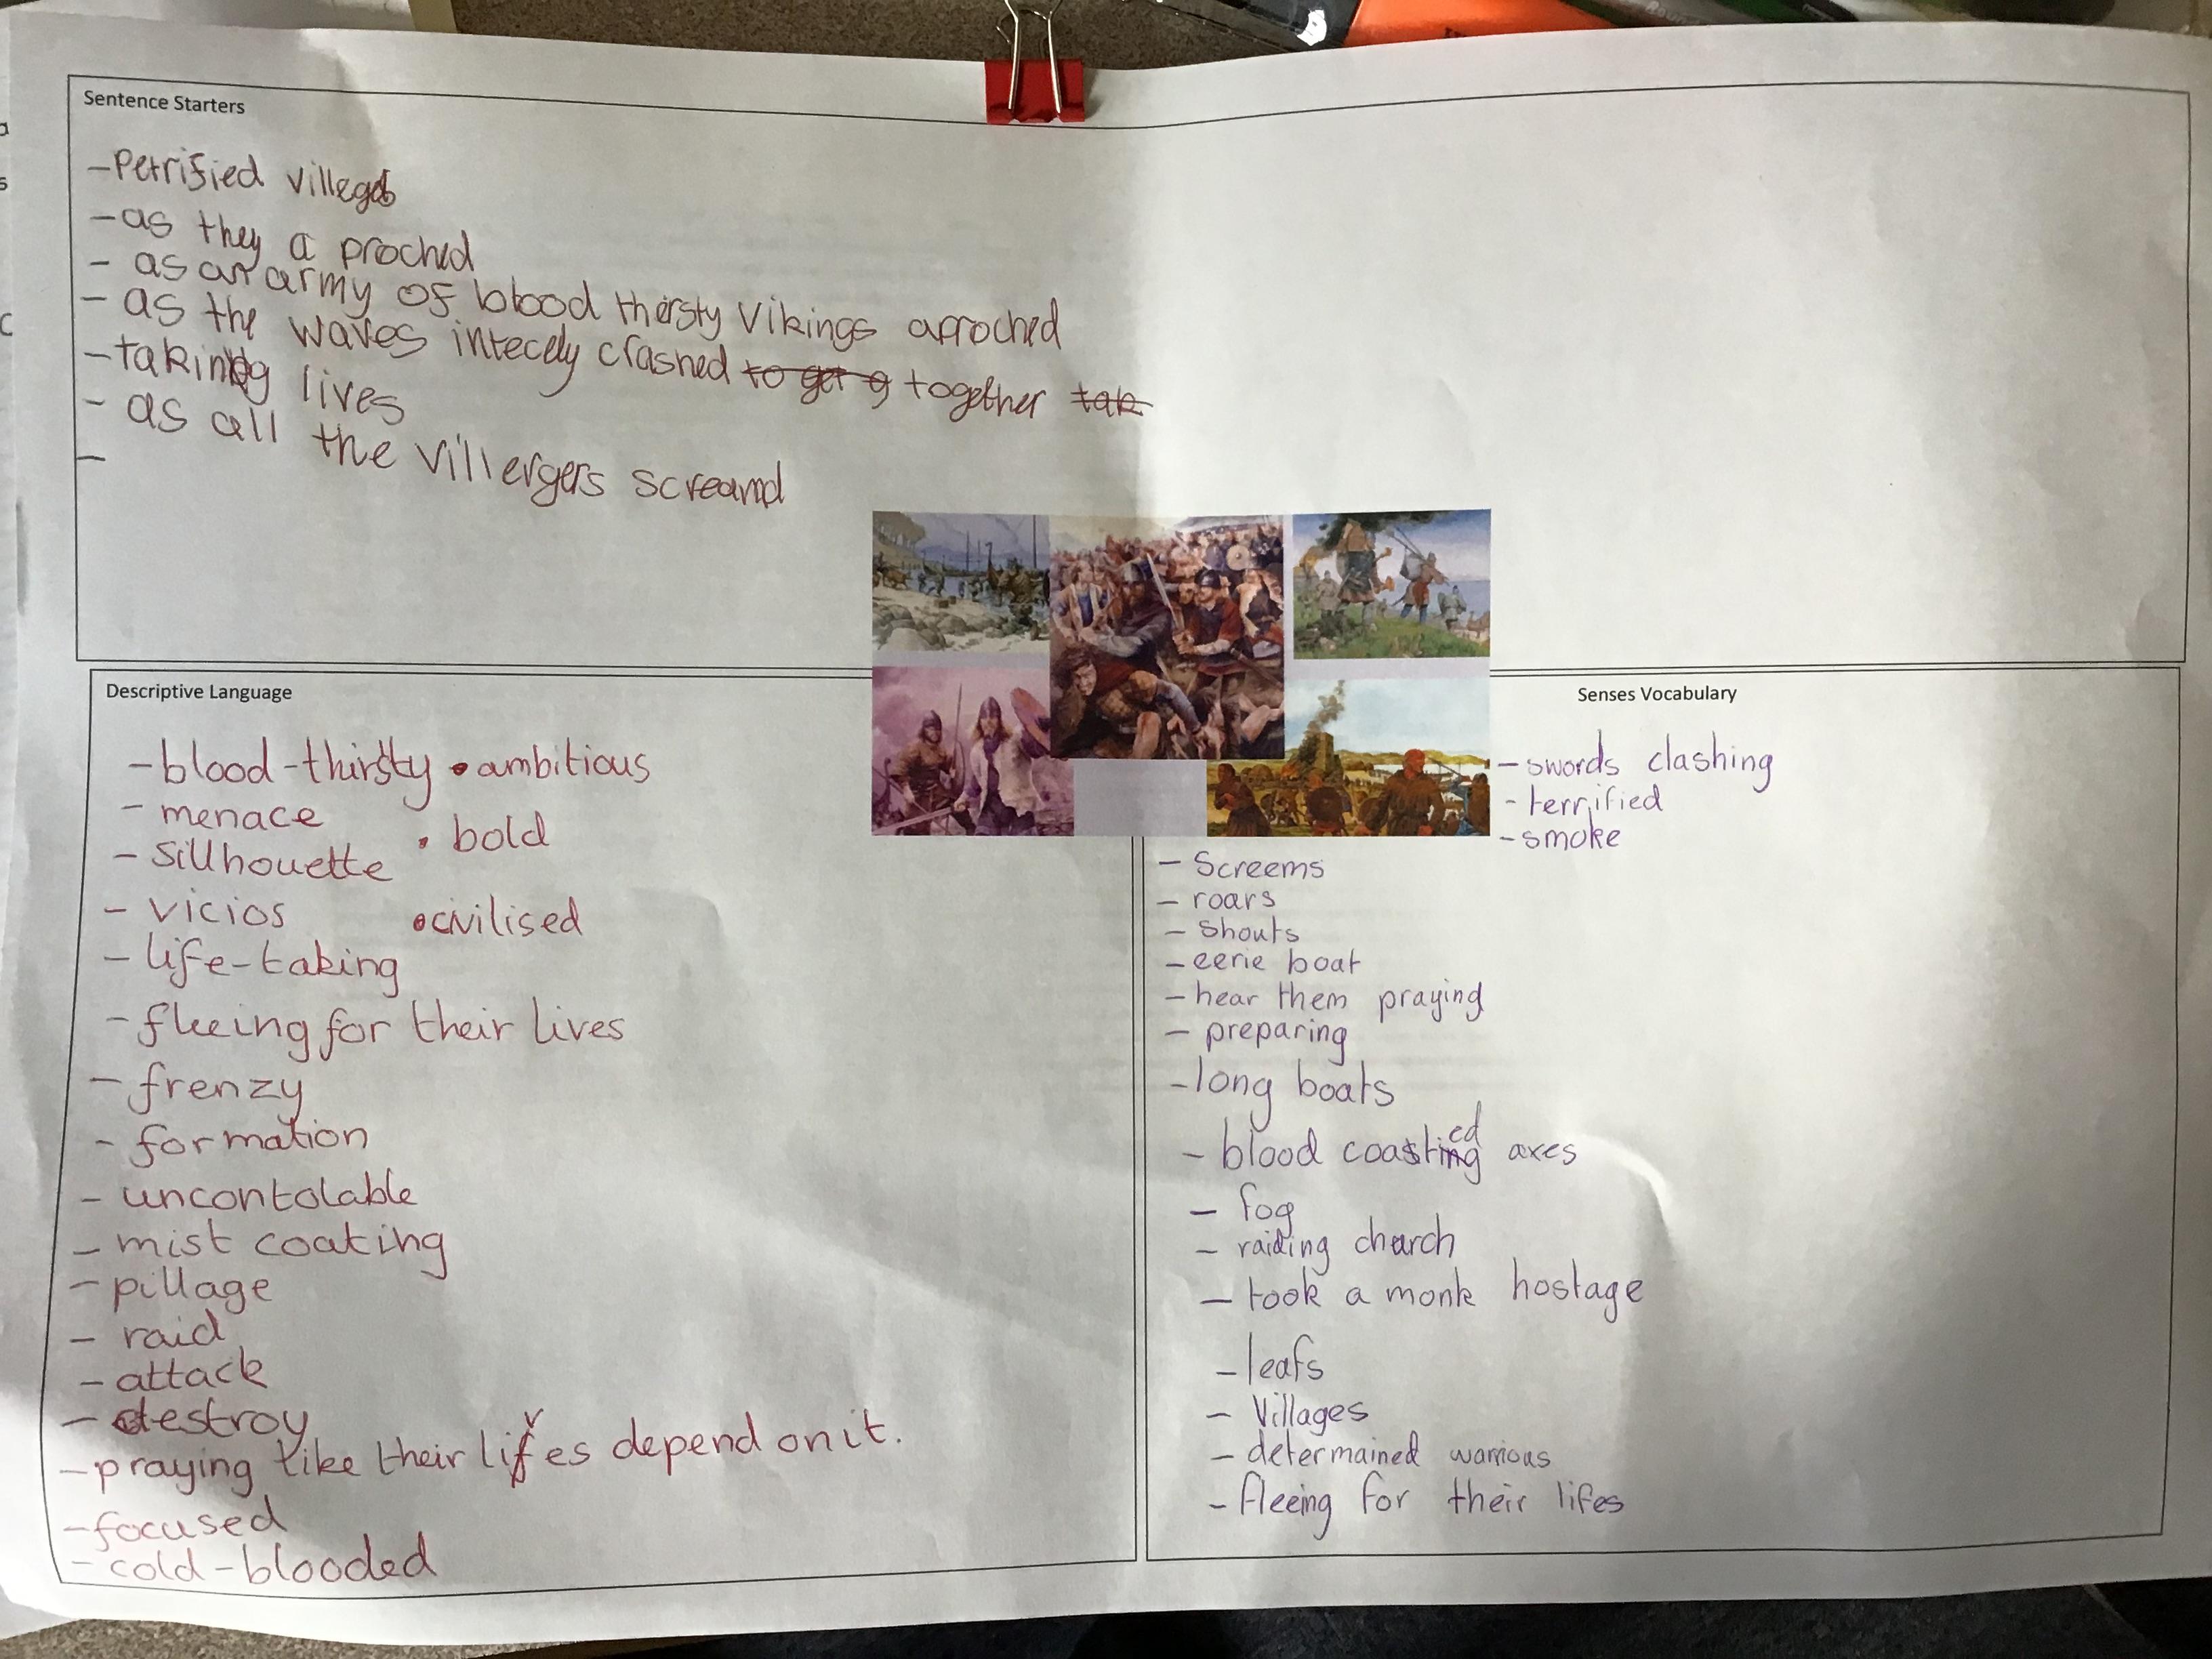 Sentence Starters
- Petrified
- as they a proched
- as an army of blood thirsty Vikings aproched
- as the waves intecely crashed to get g together tak
- taking lives
- as all the villergers screamd
-
Descriptive Language
- blood-thirsty • ambitious
- menace
• bold
- Sillhouette
- vicios
• civilised
- life-taking
- fleeing for their lives
- frenzy
- formation
- uncontolable
- mist coating
- pillage
- raid
- attack
- destroy
- praying like their lives depend on it.
- focused
- cold-blooded
Senses Vocabulary
- swords clashing
- terrified
- smoke
- Screems
- roars
- shouts
- eerie boat
- hear them praying
- preparing
- long boats
- blood coated axes
- fog
- raiding church
- took a monk hostage
- leafs
- Villages
- determained warrious
- fleeing for their lifes